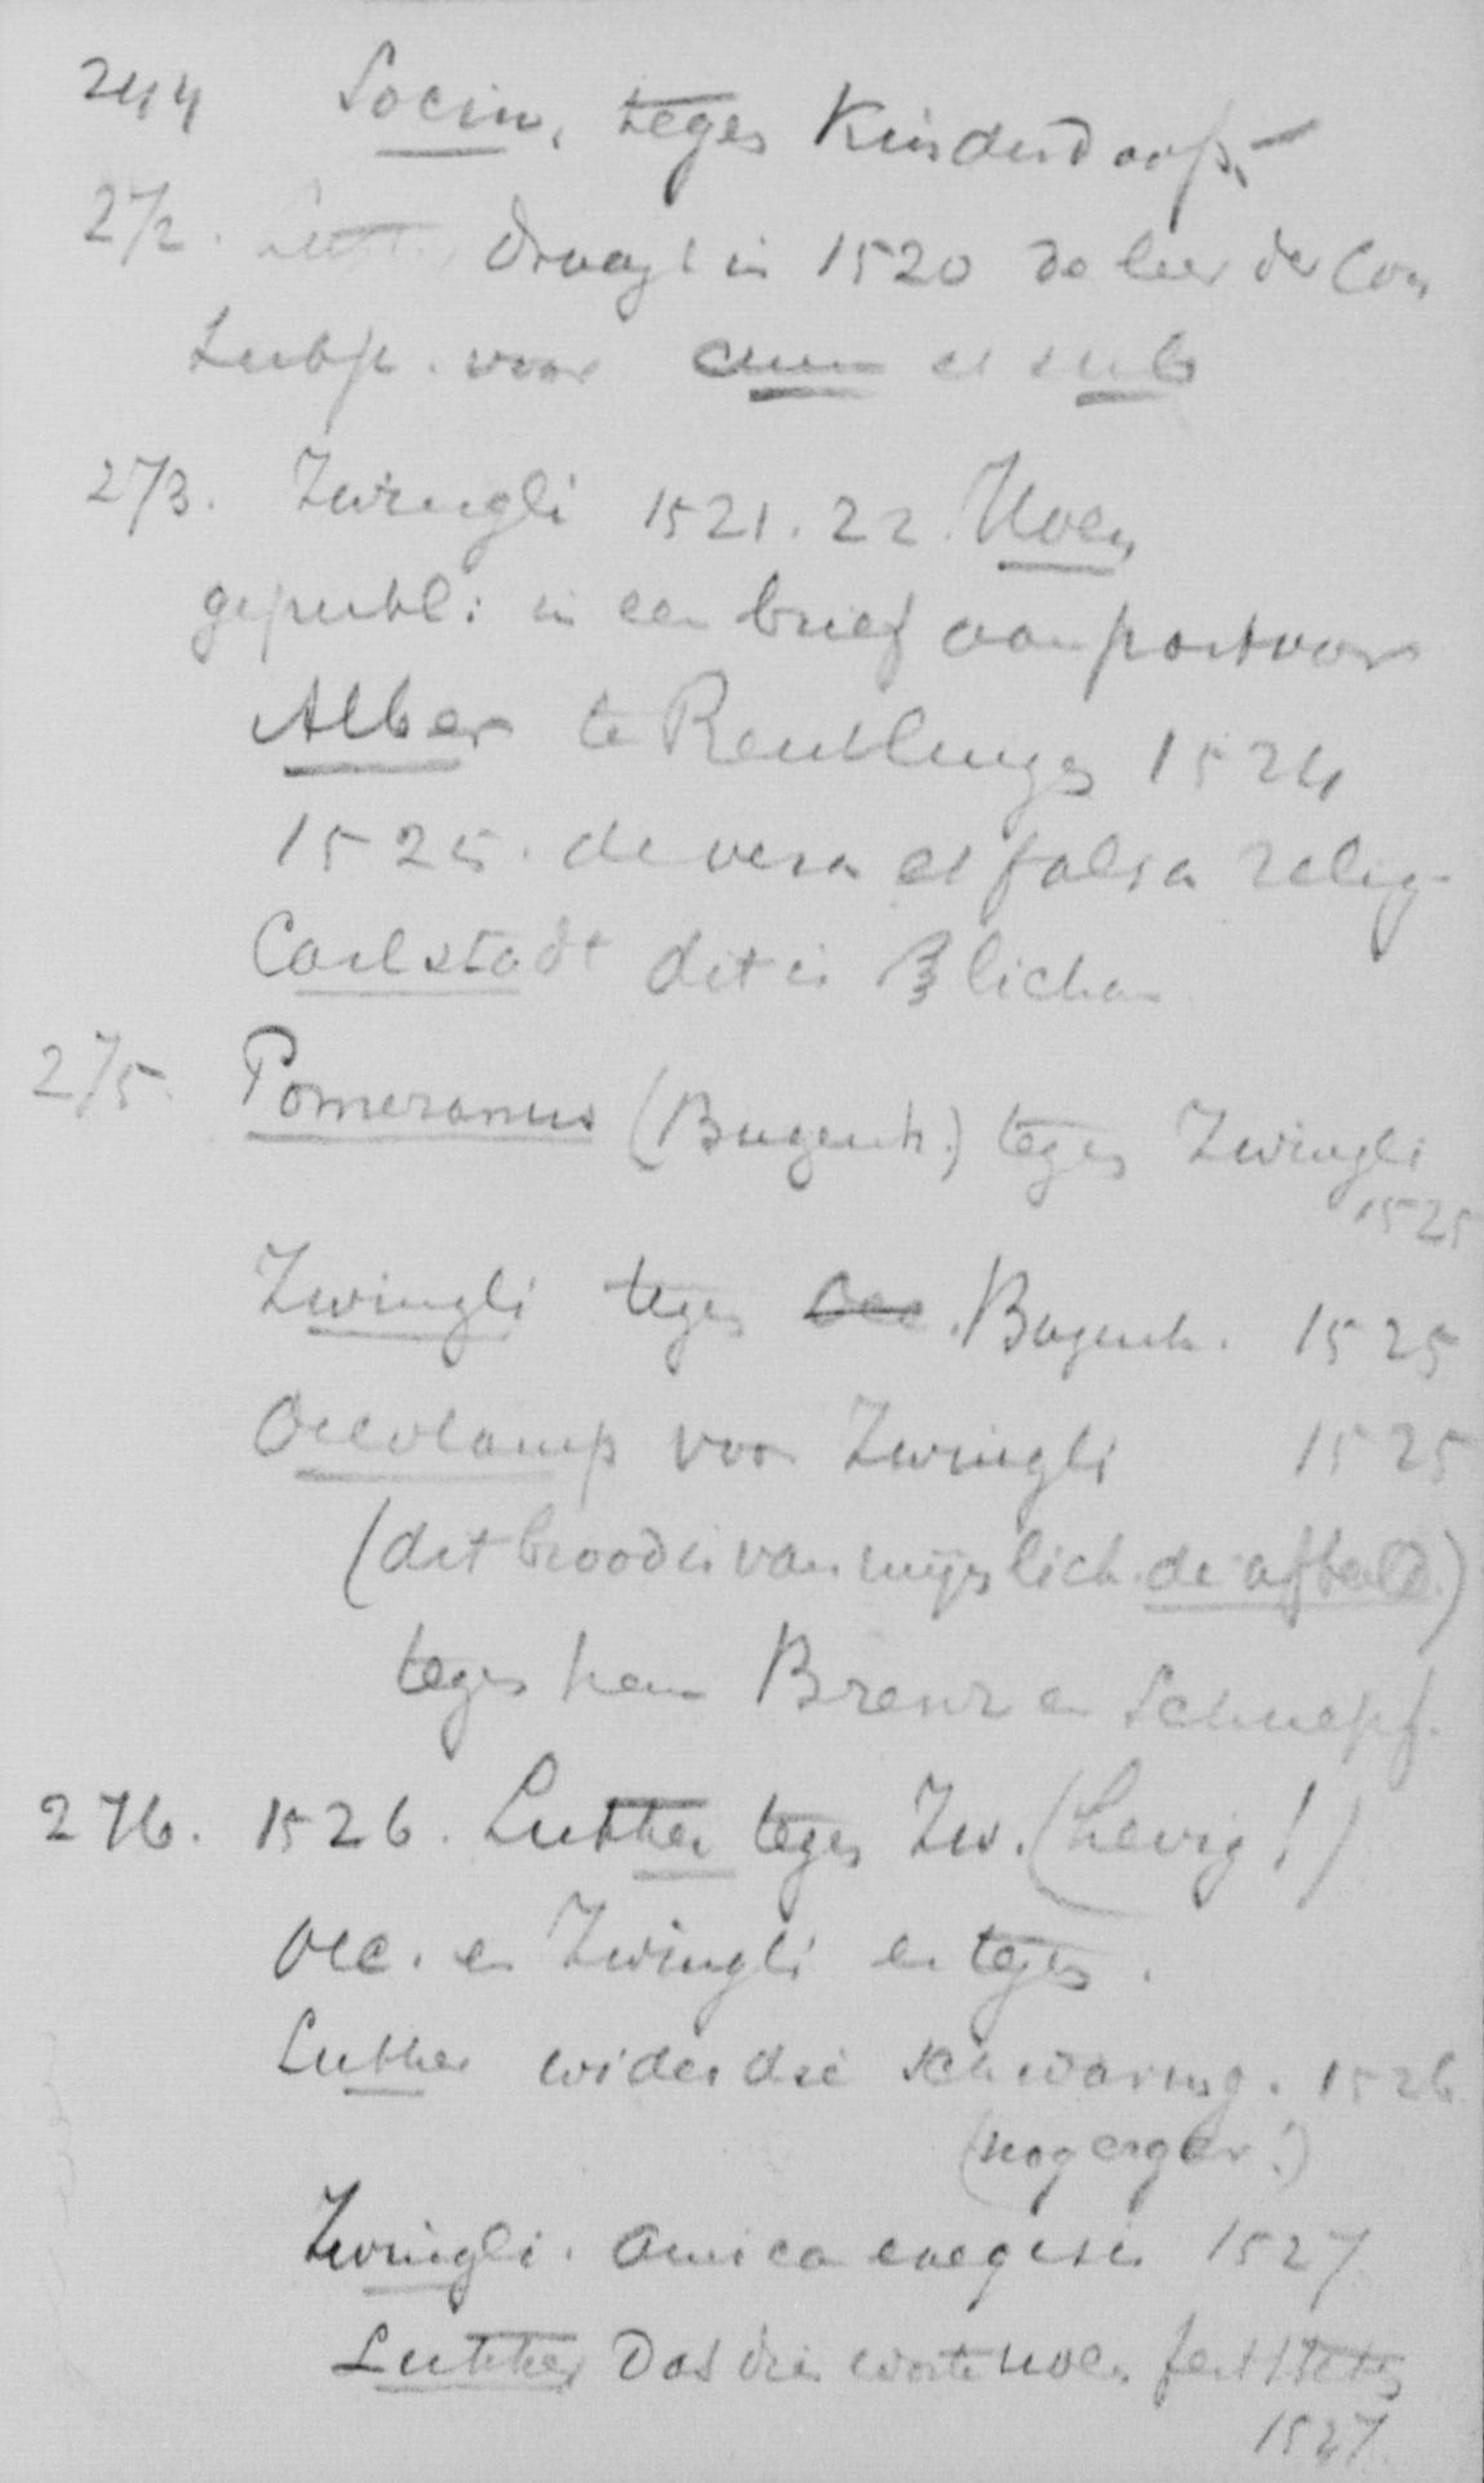 244 Socin, tegen Kinderdoop.
272. Luth. draagt in 1520 de leer der Con
Subst. voor cum et sub
273. Zwingli 1521.22. Hoen
gepubl: in een brief aan pastoor
Alber te Reutlingen 1524
1525. de vera et falsa relig.
Carlstadt dit is lichaam
275. Pomeranus (Bugenh.) tegen Zwingli
1525
Zwingli tegen Oec. Bugenh. 1525
Oecolamp voor Zwingli 1525
(dit brood is van mijn lich. de afbeeld.)
tegen hem Brenz en Schnepf.
276. 1526. Luther tegen Zw. (hevig!)
Oec. en Zwingli er tegen.
Luther wider die schwärmg. 1526
(nog erger!)
Zwingli. Amica exegesis 1527
Luther Das die worte noch fest stehen
1527.